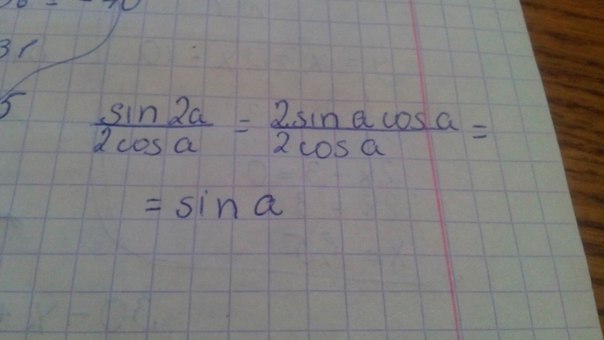 sin 2a / 2 cos a = 2 sin a cos a / 2 cos a =
= sin a